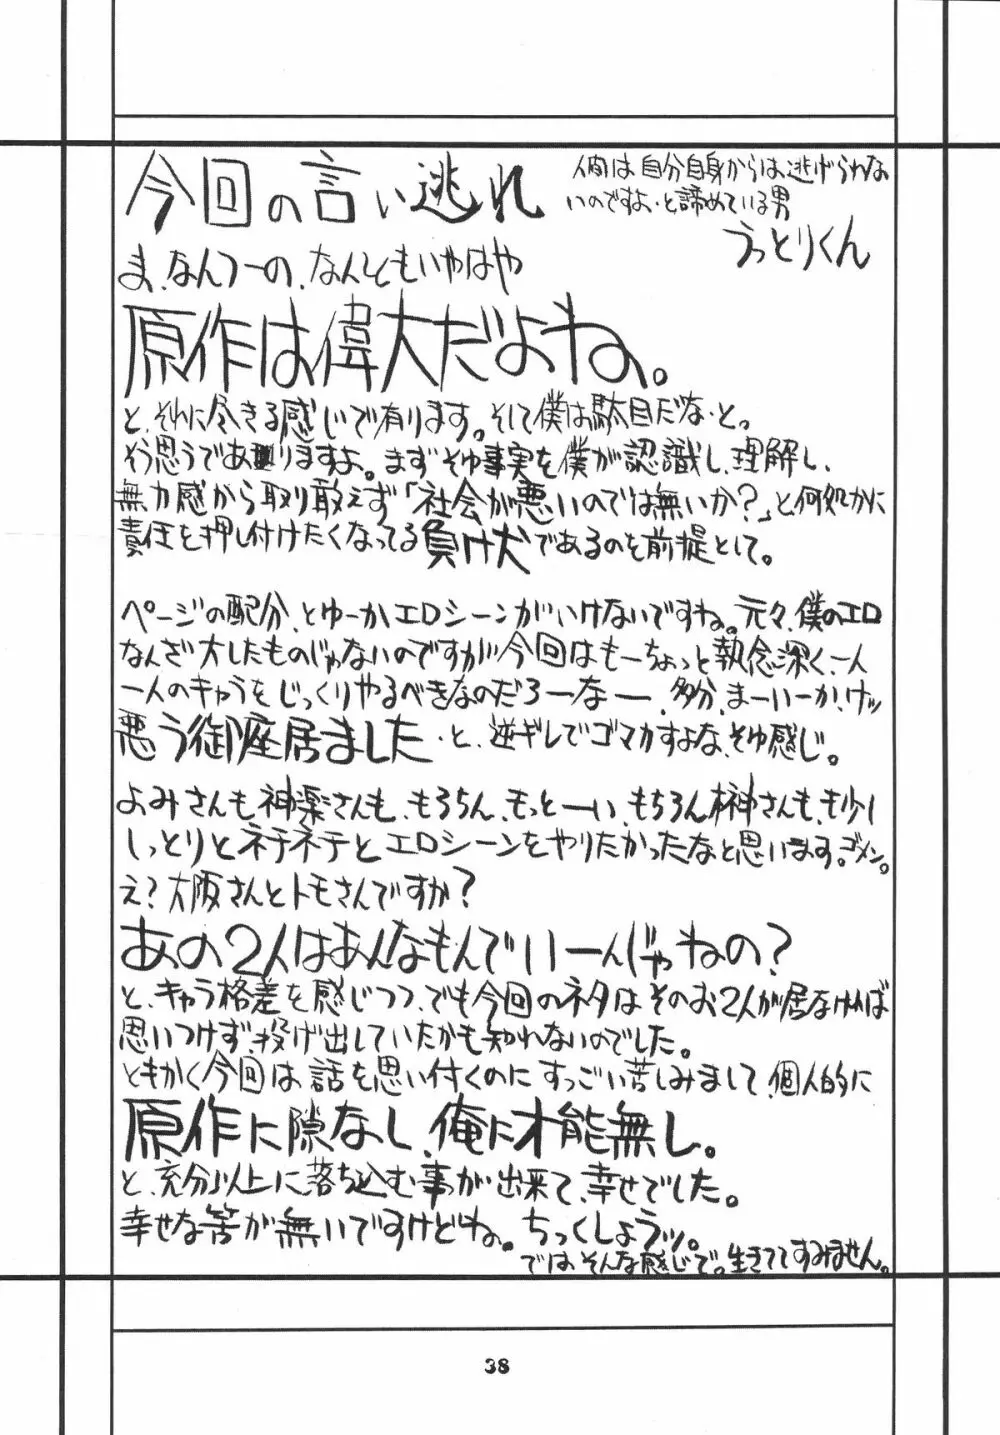 今回の言い逃れ
人間は自分自身からは逃げられな
いのですよ・と諦めている男
うっとりくん
ま、なんつーの、なんともいやはや
原作は偉大だよね。
と、それに尽きる感じで有ります。そして僕は駄目だな・と。
そう思うでありますよ。まずそゆ事実を僕が認識し、理解し、
無力感から取り敢えず「社会が悪いのでは無いか？」と何処かに
責任を押し付けたくなってる負け犬であるのを前提として。
ページの配分、とゆーかエロシーンがいけないですね。元々、僕のエロ
なんざ大したものじゃないのですが今回はもーちょっと執念深く、一人
一人のキャラをじっくりやるべきなのだろーなー、多分、まーいーか、ケッ
悪う御座居ました・と、逆ギレでゴマカすよな、そゆ感じ。
よみさんも神楽さんも、もろちん、もっとーい、もちろん榊さんも、も少し
しっとりとネチネチとエロシーンをやりたかったなと思います。ゴメン。
え？大阪さんとトモさんですか？
あの2人はあんなもんでいーんじゃねの？
と、キャラ格差を感じつつ、でも今回のネタはそのお2人が居なければ
思いつけず投げ出していたかも知れないのでした。
ともかく今回は話を思い付くのにすっごい苦しみまして、個人的に
原作に隙なし、俺に才能無し。
と、充分以上に落ち込む事が出来て、幸せでした。
幸せな筈が無いですけどね。ちっくしょうッ。
では、そんな感じで。生きててすみません。
38